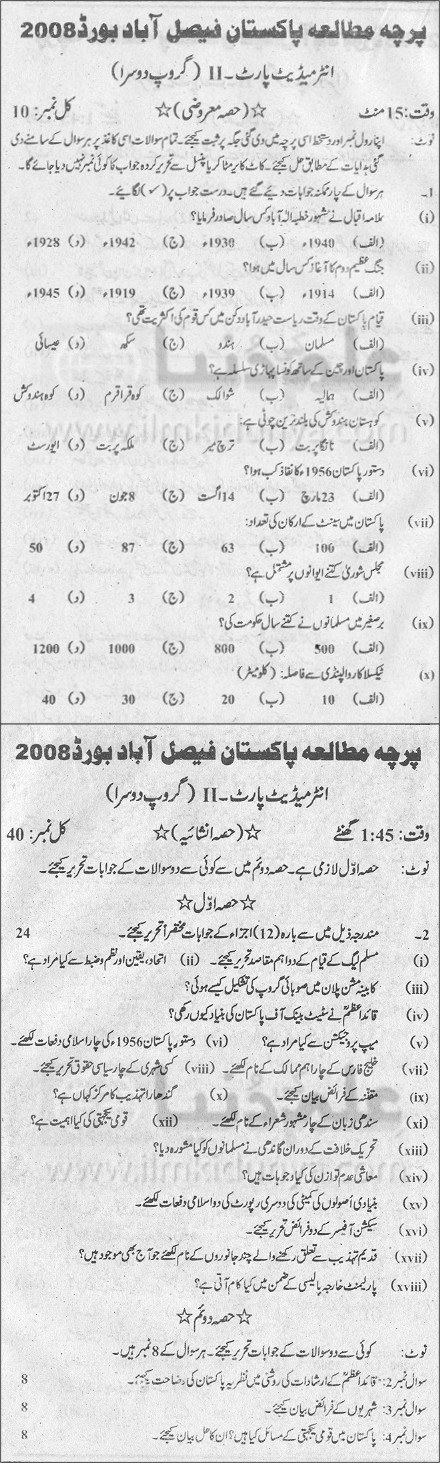 پرچہ مطالعہ پاکستان فیصل آباد بورڈ 2008
انٹرمیڈیٹ پارٹ ۔ II (گروپ دوسرا)
وقت: 15 منٹ ☆(حصہ معروضی)☆ کل نمبر: 10
نوٹ: اپنا رول نمبر اور دستخط اسی پرچہ میں دی گئی جگہ پر ثبت کیجئے۔ تمام سوالات اسی کاغذ پر ہر سوال کے سامنے دی
گئی ہدایات کے مطابق حل کیجئے۔ کاٹ کر یا مٹا کر یا پنسل سے تحریر کردہ جواب کا کوئی نمبر نہیں دیا جائے گا۔
1۔ ہر سوال کے چار ممکنہ جوابات دیئے گئے ہیں۔ درست جواب پر (✓) لگائیے۔
(i) علامہ اقبال نے مشہور خطبہ الٰہ آباد کس سال صادر فرمایا؟
(الف) 1940ء (ب) 1930ء (ج) 1942ء (د) 1928ء
(ii) جنگ عظیم دوم کا آغاز کس سال میں ہوا؟
(الف) 1914ء (ب) 1939ء (ج) 1919ء (د) 1945ء
(iii) قیام پاکستان کے وقت ریاست حیدر آباد دکن میں کس قوم کی اکثریت تھی؟
(الف) مسلمان (ب) ہندو (ج) سکھ (د) عیسائی
(iv) پاکستان اور چین کے ساتھ کونسا پہاڑی سلسلہ ہے؟
(الف) ہمالیہ (ب) شوالک (ج) کوہ قراقرم (د) کوہ ہندوکش
(v) کوہستان ہندوکش کی بلند ترین چوٹی ہے:
(الف) نانگا پربت (ب) ترچ میر (ج) ملکہ پربت (د) ایورسٹ
(vi) دستور پاکستان 1956 کا نفاذ کب ہوا؟
(الف) 23 مارچ (ب) 14 اگست (ج) 8 جون (د) 27 اکتوبر
(vii) پاکستان میں سینٹ کے ارکان کی تعداد:
(الف) 100 (ب) 63 (ج) 87 (د) 50
(viii) مجلس شوریٰ کتنے ایوانوں پر مشتمل ہے؟
(الف) 1 (ب) 2 (ج) 3 (د) 4
(ix) برصغیر میں مسلمانوں نے کتنے سال حکومت کی؟
(الف) 500 (ب) 800 (ج) 1000 (د) 1200
(x) ٹیکسلا کا راولپنڈی سے فاصلہ: (کلومیٹر)
(الف) 10 (ب) 20 (ج) 30 (د) 40
پرچہ مطالعہ پاکستان فیصل آباد بورڈ 2008
انٹرمیڈیٹ پارٹ ۔ II (گروپ دوسرا)
وقت: 1:45 گھنٹے ☆(حصہ انشائیہ)☆ کل نمبر: 40
نوٹ: حصہ اوّل لازمی ہے۔ حصہ دوئم میں سے کوئی سے دو سوالات کے جوابات تحریر کیجئے۔
☆حصہ اوّل☆
2۔ مندرجہ ذیل میں سے بارہ (12) اجزاء کے جوابات مختصراً تحریر کیجئے۔ 24
(i) مسلم لیگ کے قیام کے دو اہم مقاصد تحریر کیجئے۔ (ii) اتحاد، یقین اور نظم و ضبط سے کیا مراد ہے؟
(iii) کابینہ مشن پلان میں صوبائی گروپ کی تشکیل کیسے ہوئی؟
(iv) قائداعظمؒ نے سٹیٹ بینک آف پاکستان کی بنیاد کیوں رکھی؟
(v) میپ پروجیکشن سے کیا مراد ہے؟ (vi) دستور پاکستان 1956ء کی چار اسلامی دفعات لکھئے۔
(vii) خلیج فارس کے چار اہم ممالک کے نام لکھئے۔ (viii) کسی شہری کے چار سیاسی حقوق تحریر کیجئے۔
(ix) مقننہ کے فرائض بیان کیجئے۔ (x) گندھارا تہذیب کا مرکز کہاں ہے؟
(xi) سندھی زبان کے چار مشہور شعراء کے نام لکھئے۔ (xii) قومی یکجہتی کی کیا اہمیت ہے؟
(xiii) تحریک خلافت کے دوران گاندھی نے مسلمانوں کو کیا مشورہ دیا؟
(xiv) معاشی عدم توازن کی کیا وجوہات ہیں؟
(xv) بنیادی اُصولوں کی کمیٹی کی دوسری رپورٹ کی دو اسلامی دفعات لکھئے۔
(xvi) سیکشن آفیسر کے دو فرائض تحریر کیجئے۔
(xvii) قدیم تہذیب سے تعلق رکھنے والے چند جانوروں کے نام لکھئے جو آج بھی موجود ہیں؟
(xviii) پارلیمنٹ خارجہ پالیسی کے ضمن میں کیا کام آتی ہے؟
☆حصہ دوئم☆
نوٹ: کوئی سے دو سوالات کے جوابات تحریر کیجئے۔ ہر سوال کے 8 نمبر ہیں۔
سوال نمبر 2: قائداعظمؒ کے ارشادات کی روشنی میں نظریہ پاکستان کی وضاحت کیجئے۔ 8
سوال نمبر 3: شہریوں کے فرائض بیان کیجئے۔ 8
سوال نمبر 4: پاکستان میں قومی یکجہتی کے مسائل کیا ہیں؟ ان کا حل بیان کیجئے۔ 8